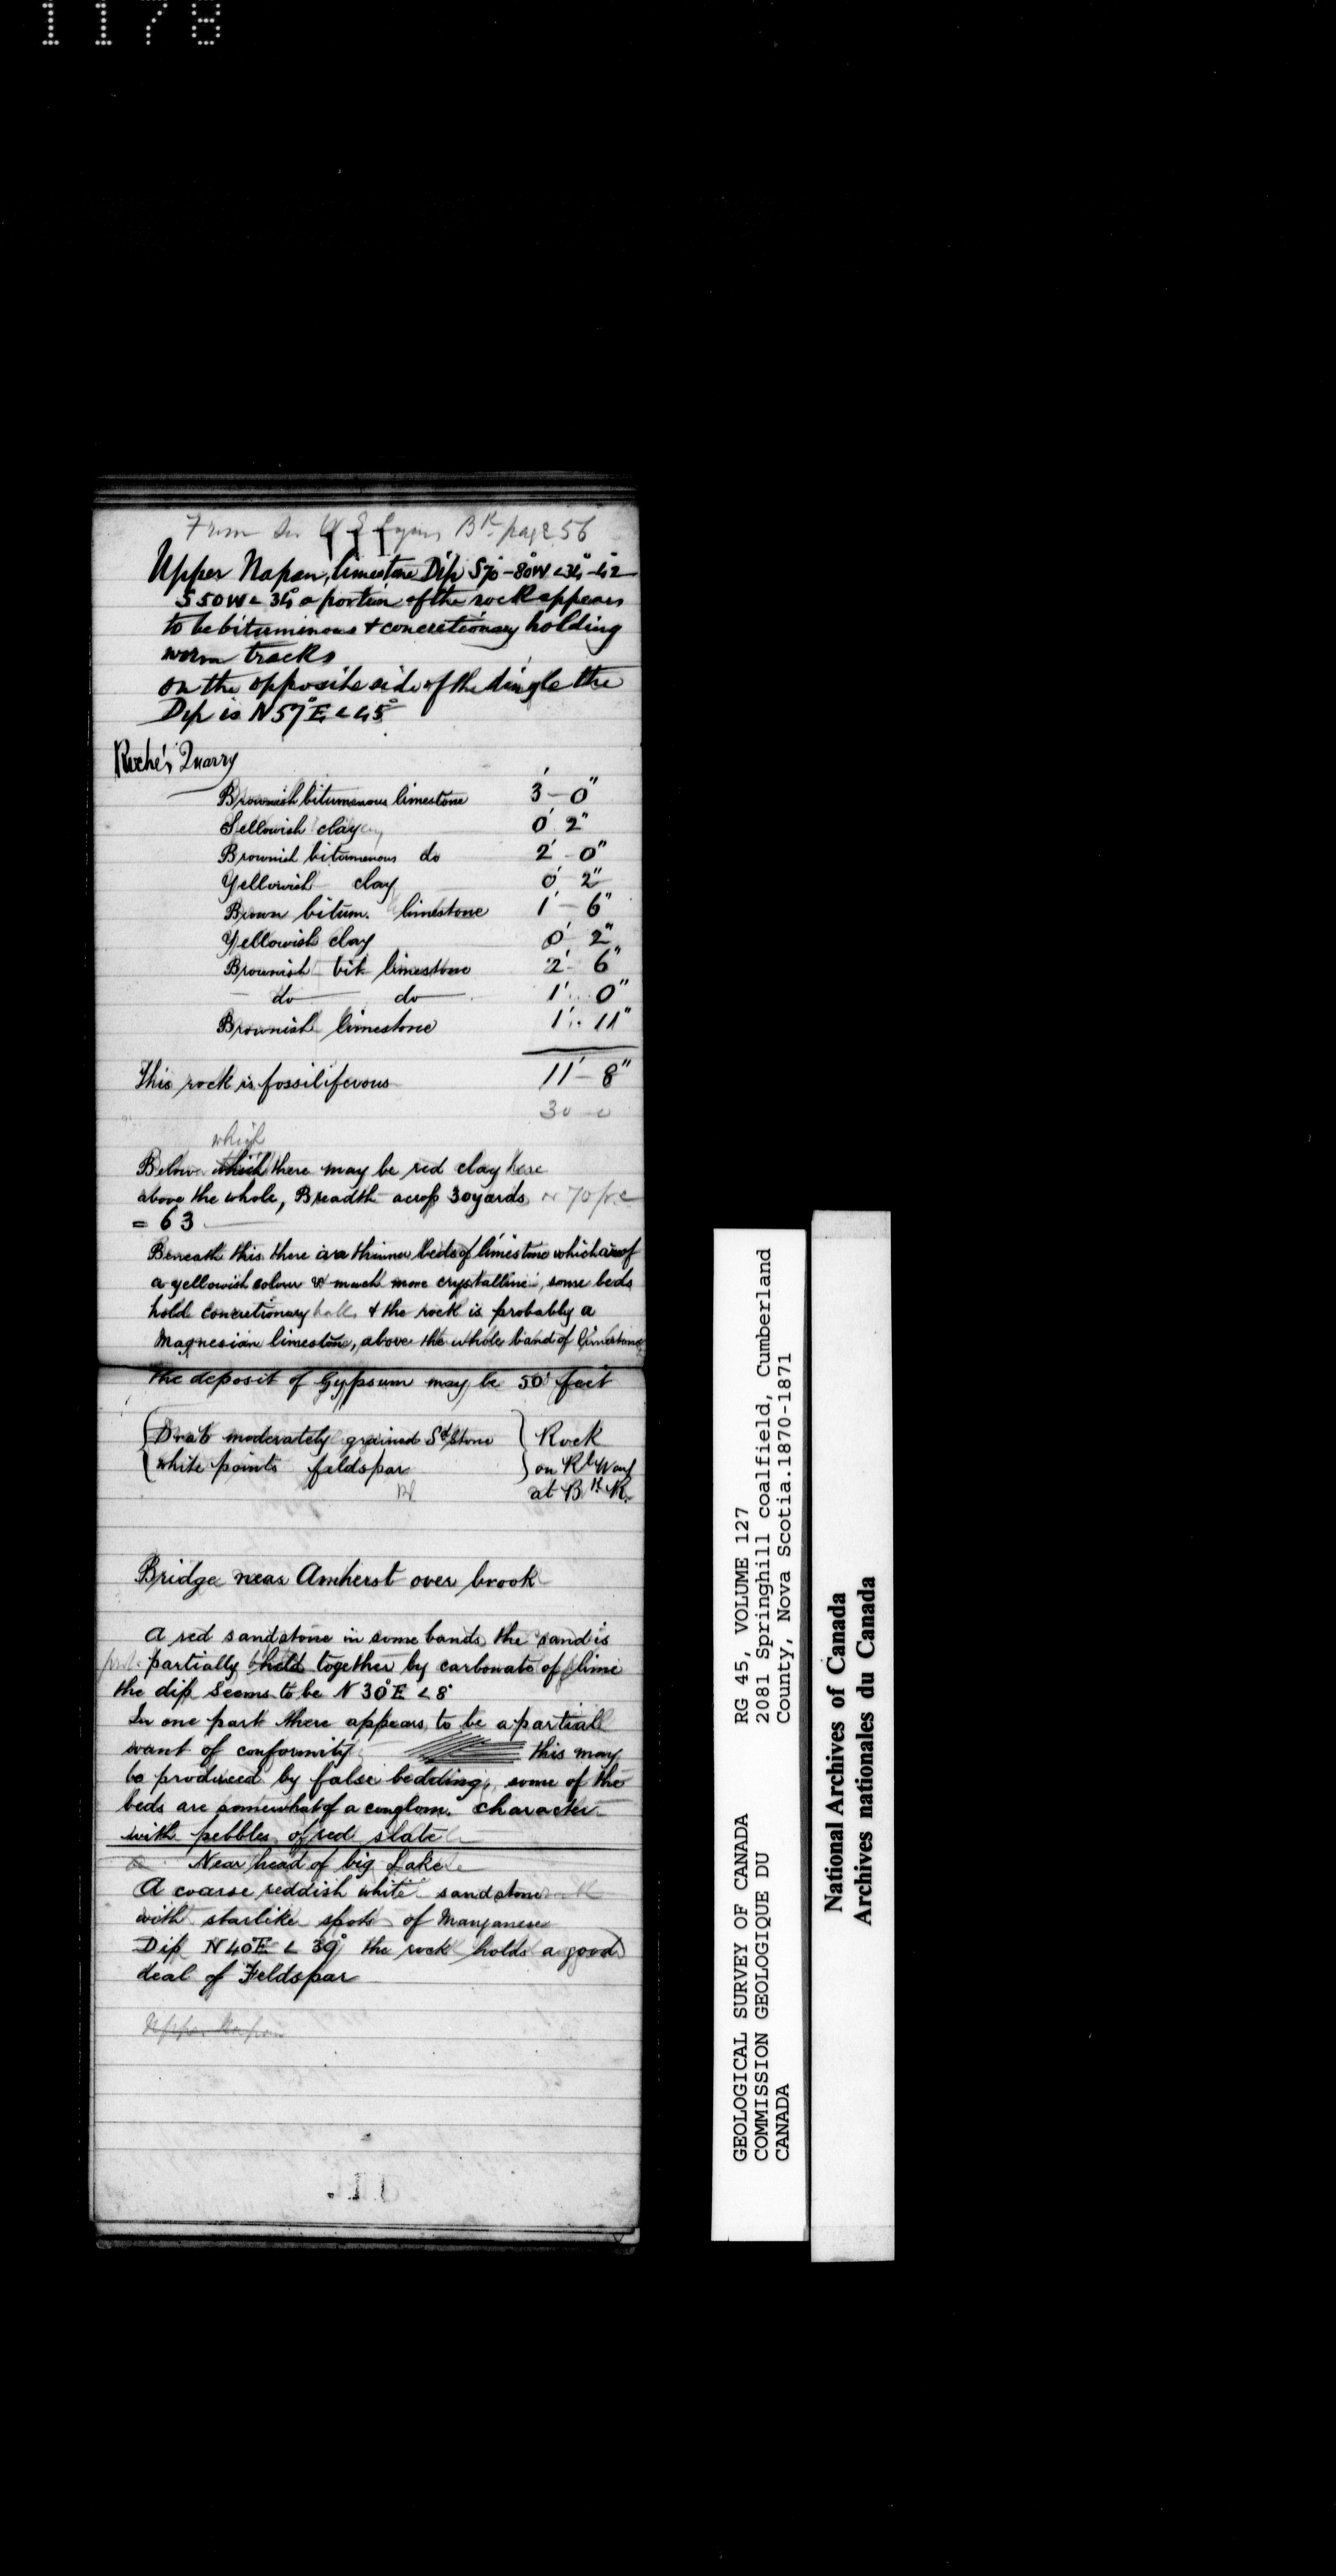 1178
From Sir W E Logans Bk page 56
Upper Napan, limestone Dip S70°-80°W < 34°-42
S50W < 34° a portion of the rock appears
to be bituminous & concretionary holding
worm tracks
on the opposite side of the dingle the
Dip is N57°E < 45°
Roche's Quarry
Brownish bitumenous limestone 3'-0"
Yellowish clay 0' 2"
Brownish bitumenous do 2'-0"
Yellowish clay 0' 2"
Brown bitum. limestone 1'-6"
Yellowish clay 0' 2"
Brownish bit limestone 2'-6"
do do 1' 0"
Brownish limestone 1'. 11"
This rock is fossiliferous 11'-8"
30
which
Below which there may be red clay here
above the whole, Breadth across 30 yards 70
= 63
Beneath this there are thinner beds of limestone which are of
a yellowish colour & much more crystalline, some beds
hold concretionary balls & the rock is probably a
Magnesian limestone, above the whole band of limestone
the deposit of Gypsum may be 50 feet
Drab moderately grained Sdstone Rock
white points feldspar on Rl Way
at Bk R.
Bridge near Amherst over brook
A red sandstone in some bands the sand is
partially held together by carbonate of lime
the dip seems to be N 30°E < 8°
In one part there appears to be a partial
want of conformity this may
be produced by false bedding, some of the
beds are somewhat of a conglom. character
with pebbles of red slate
Near head of big Lake
A coarse reddish white sandstone
with starlike spots of Manganese
Dip N40°E < 39° the rock holds a good
deal of Feldspar
Upper Napan
GEOLOGICAL SURVEY OF CANADA RG 45, VOLUME 127
COMMISSION GEOLOGIQUE DU 2081 Springhill coalfield, Cumberland
CANADA County, Nova Scotia.1870-1871
National Archives of Canada
Archives nationales du Canada